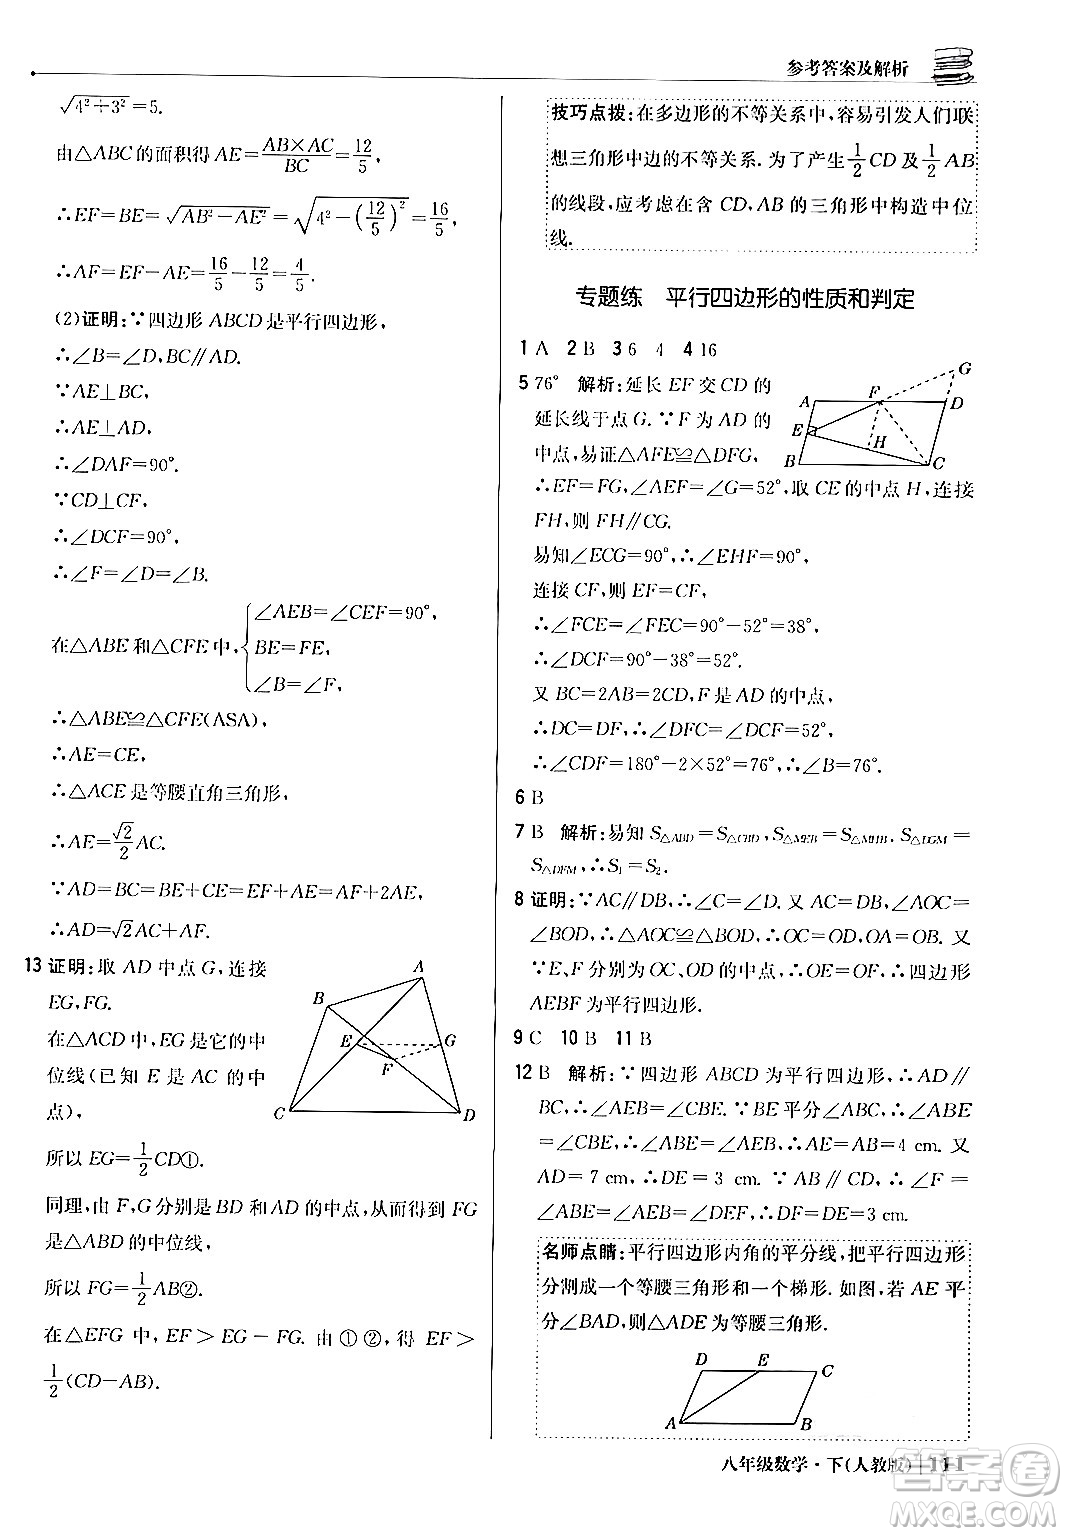 参考答案及解析
√(4²+3²)=5.
由△ABC的面积得AE=(AB×AC)/BC=12/5,
∴EF=BE=√(AB²-AE²)=√(4²-(12/5)²)=16/5,
∴AF=EF-AE=16/5-12/5=4/5.
(2)证明:∵四边形ABCD是平行四边形,
∴∠B=∠D,BC∥AD.
∵AE⊥BC,
∴AE⊥AD,
∴∠DAF=90°.
∵CD⊥CF,
∴∠DCF=90°,
∴∠F=∠D=∠B.
在△ABE和△CFE中,{∠AEB=∠CEF=90°,
BE=FE,
∠B=∠F,
∴△ABE≌△CFE(ASA),
∴AE=CE,
∴△ACE是等腰直角三角形,
∴AE=√2/2 AC.
∵AD=BC=BE+CE=EF+AE=AF+2AE,
∴AD=√2AC+AF.
13 证明:取AD中点G,连接
EG,FG.
在△ACD中,EG是它的中
位线(已知E是AC的中
点),
所以EG=1/2CD①.
同理,由F,G分别是BD和AD的中点,从而得到FG
是△ABD的中位线,
所以FG=1/2AB②.
在△EFG中,EF>EG-FG.由①②,得EF>
1/2(CD-AB).
A
B
E
G
F
C
D
技巧点拨:在多边形的不等关系中,容易引发人们联
想三角形中边的不等关系.为了产生1/2CD及1/2AB
的线段,应考虑在含CD,AB的三角形中构造中位
线.
专题练 平行四边形的性质和判定
1 A 2 B 3 6 4 4 16
5 76° 解析:延长EF交CD的
延长线于点G.∵F为AD的
中点,易证△AFE≌△DFG,
∴EF=FG,∠AFE=∠G=52°,取CE的中点H,连接
FH,则FH∥CG.
易知∠ECG=90°,∴∠EHF=90°,
连接CF,则EF=CF,
∴∠FCE=∠FEC=90°-52°=38°,
∴∠DCF=90°-38°=52°.
又BC=2AB=2CD,F是AD的中点,
∴DC=DF,∴∠DFC=∠DCF=52°,
∴∠CDF=180°-2×52°=76°,∴∠B=76°.
G
A
F
D
E
H
B
C
6 B
7 B 解析:易知S△ABD=S△CBD,S△MEB=S△MHB,S△DGM=
S△DFM,∴S₁=S₂.
8 证明:∵AC∥DB,∴∠C=∠D.又AC=DB,∠AOC=
∠BOD,∴△AOC≌△BOD,∴OC=OD,OA=OB.又
∵E,F分别为OC,OD的中点,∴OE=OF,∴四边形
AEBF为平行四边形.
9 C 10 B 11 B
12 B 解析:∵四边形ABCD为平行四边形,∴AD∥
BC,∴∠AEB=∠CBE.∵BE平分∠ABC,∴∠ABE
=∠CBE,∴∠ABE=∠AEB,∴AE=AB=4 cm.又
AD=7 cm,∴DE=3 cm.∵AB∥CD,∴∠F=
∠ABE=∠AEB=∠DEF,∴DF=DE=3 cm.
名师点睛:平行四边形内角的平分线,把平行四边形
分割成一个等腰三角形和一个梯形.如图,若AE平
分∠BAD,则△ADE为等腰三角形.
D
E
C
A
B
八年级数学·下(人教版) 111
答案圈
MXQE.COM